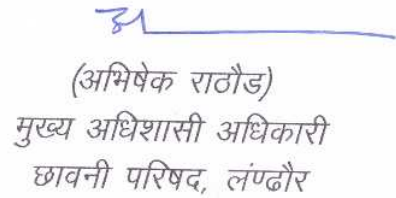 (अभिषेक राठौड)
मुख्य अधिशासी अधिकारी
छावनी परिषद, लंण्ढौर